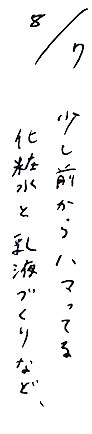 8/7
少し前からハマってる
化粧水と乳液づくりなど、